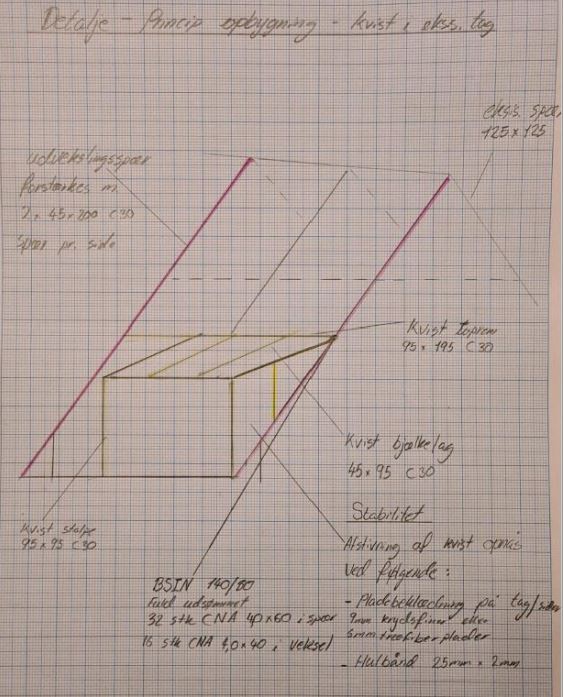 Detalje - Princip opbygning - kvist i eksis. tag
eksis. spær
125 x 125
udvekslingsspær
forstærkes m.
2 x 45x200 C30
spær pr. side
Kvist toprem
95 x 195 C30
Kvist bjælkelag
45 x 95 C30
Kvist stolpe
95 x 95 C30
Stabilitet
Afstivning af kvist opnås
ved følgende :
- Pladebeklædning på tag/sider
9mm krydsfiner eller
6mm træfiberplader
- Hulbånd 25mm x 2mm
BSIN 140/80
Fuld udsømmet
32 stk CNA 4,0x60 i spær
16 stk CNA 4,0x40 i veksel